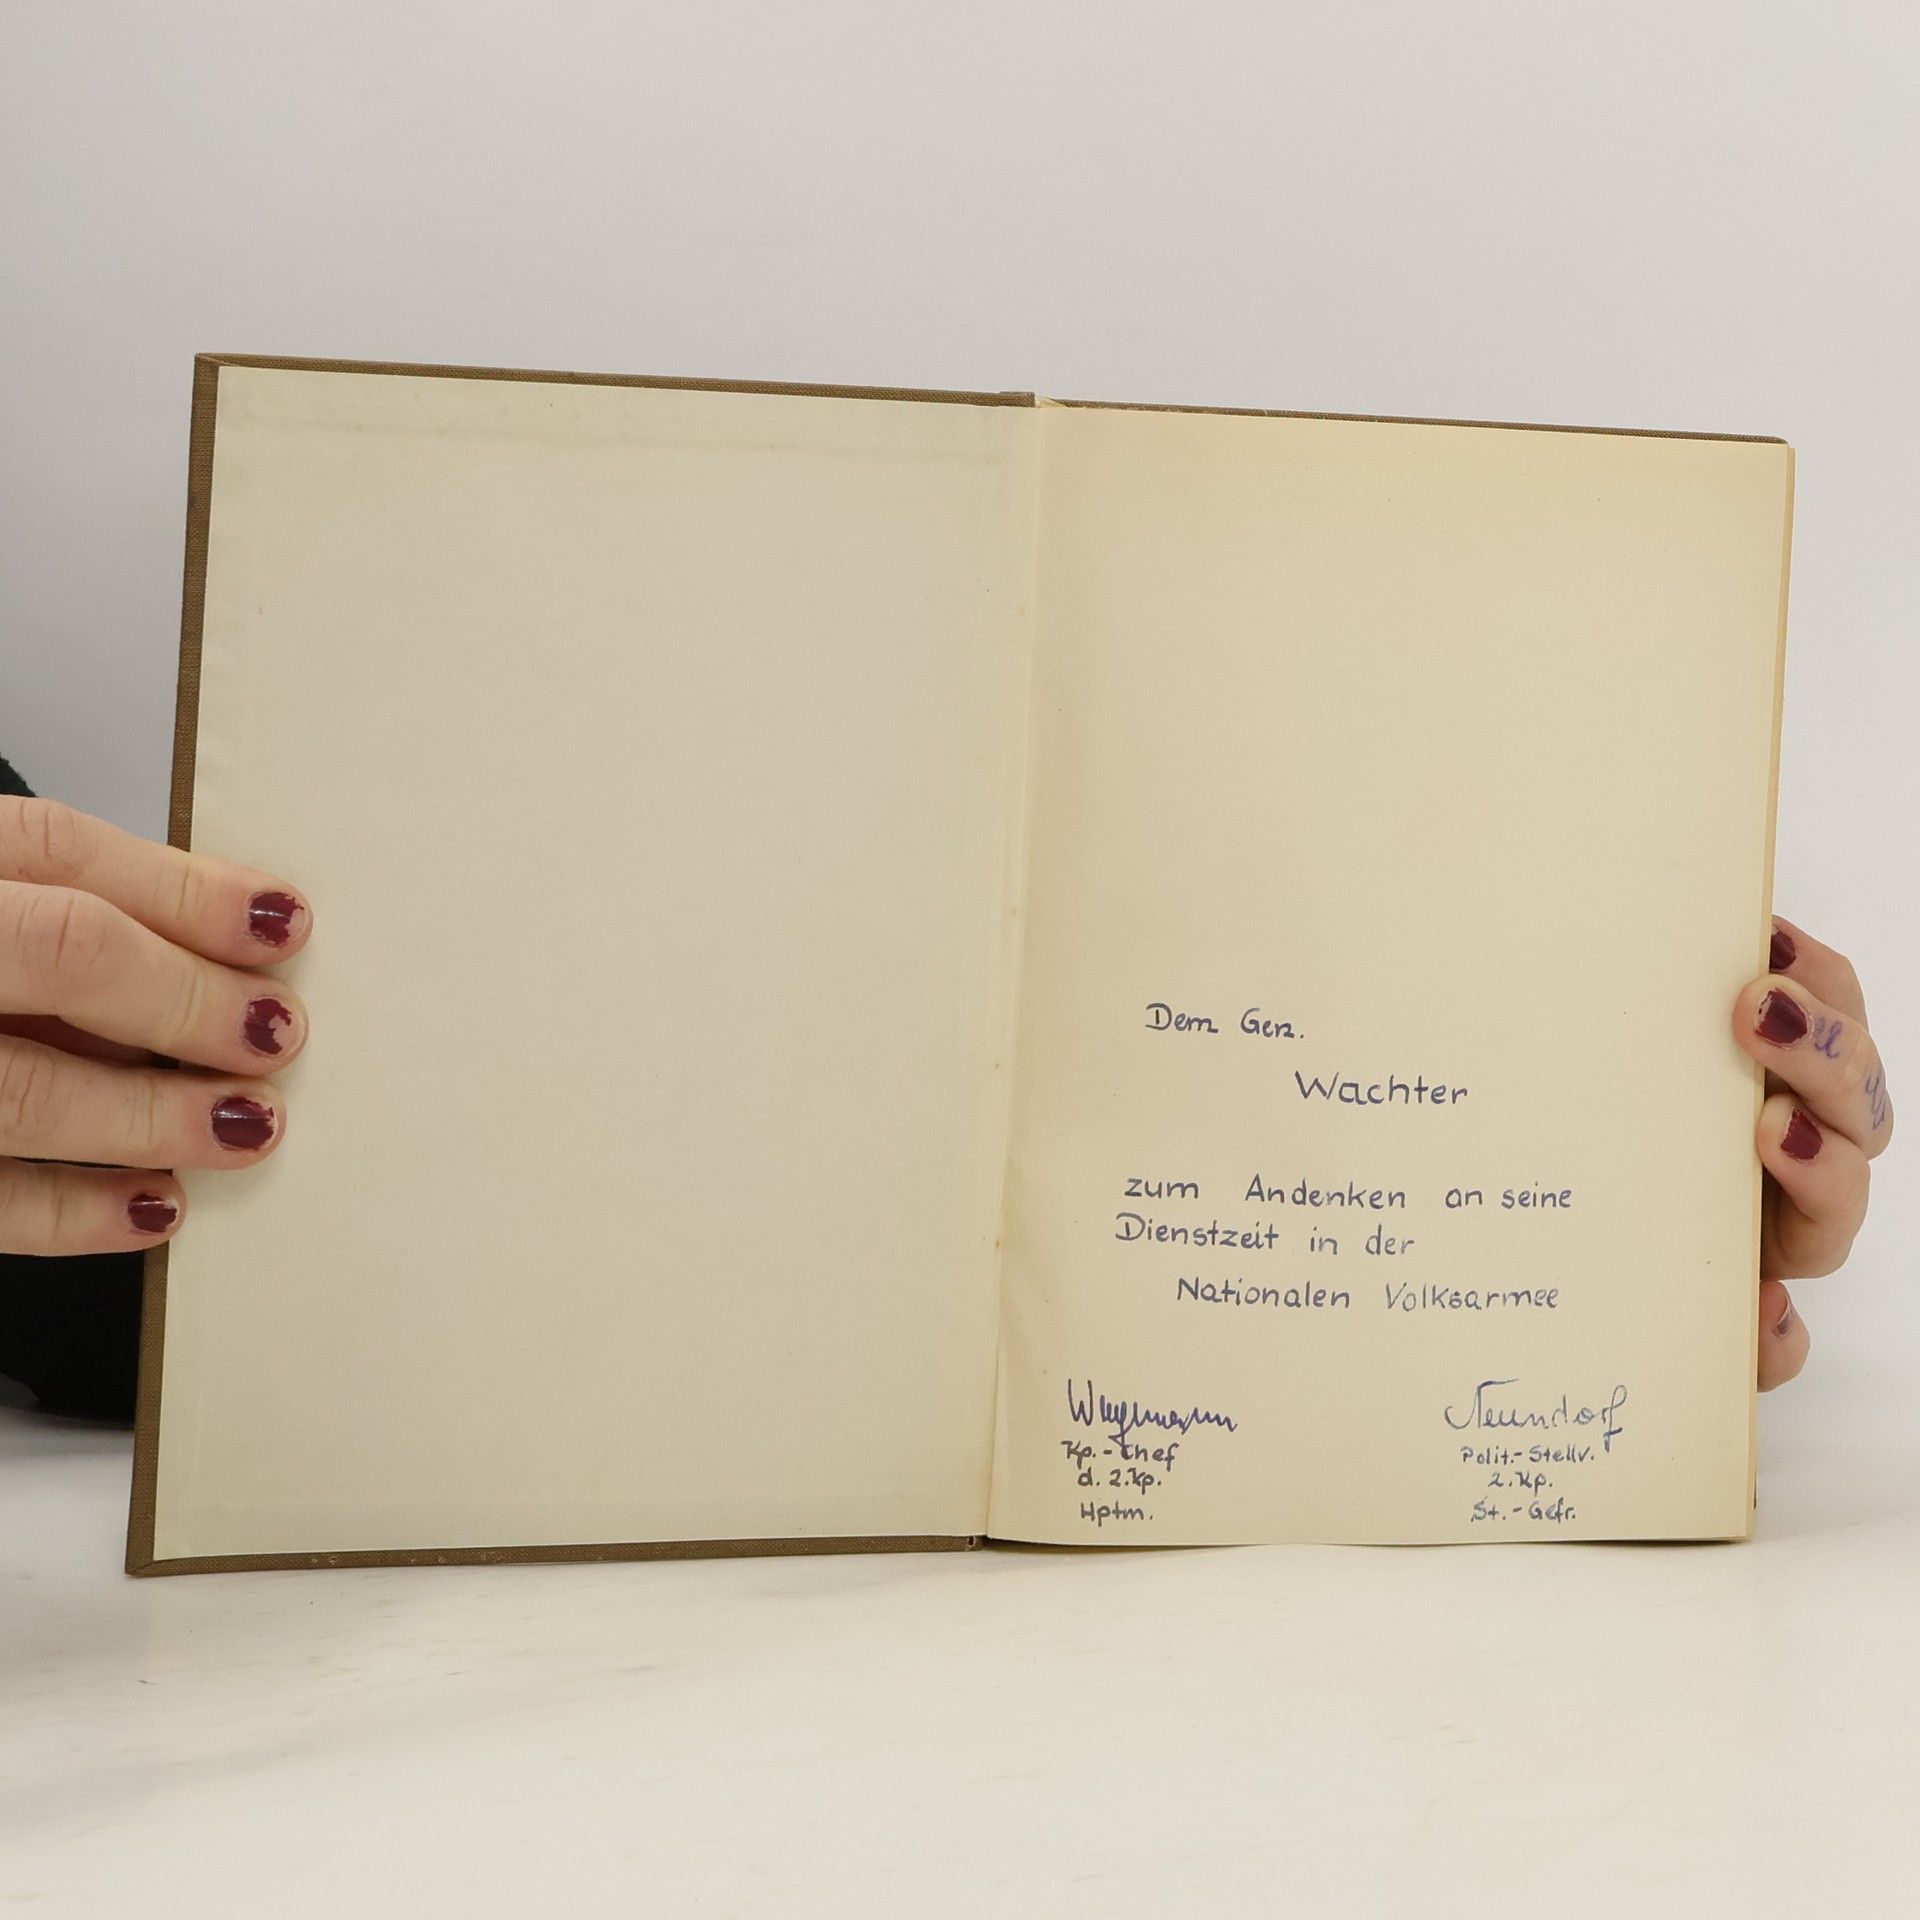 Dem Gen.
Wachter
zum Andenken an seine
Dienstzeit in der
Nationalen Volksarmee
Wegmann
Kp.-Chef
d. 2.Kp.
Hptm.
Neundorf
Polit.-Stellv.
2.Kp.
St.-Gefr.